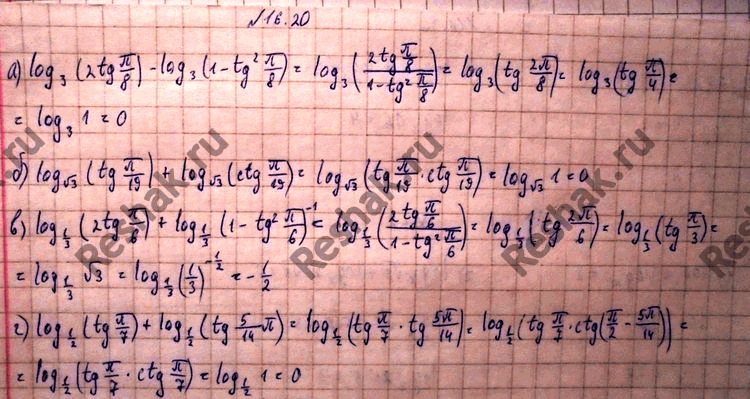 №16.20
а) log₃(2tg π/8) - log₃(1-tg² π/8) = log₃(2tg π/8 / 1-tg² π/8) = log₃(tg 2π/8) = log₃(tg π/4) =
= log₃ 1 = 0
б) log_√3 (tg π/19) + log_√3 (ctg π/19) = log_√3 (tg π/19 · ctg π/19) = log_√3 1 = 0
в) log_1/3 (2tg π/6) + log_1/3 (1 - tg² π/6)⁻¹ = log_1/3 (2tg π/6 / 1-tg² π/6) = log_1/3 (tg 2π/6) = log_1/3 (tg π/3) =
= log_1/3 √3 = log_1/3 (1/3)^-1/2 = -1/2
г) log_1/2 (tg π/7) + log_1/2 (tg 5/14 π) = log_1/2 (tg π/7 · tg 5π/14) = log_1/2 (tg π/7 · ctg(π/2 - 5π/14)) =
= log_1/2 (tg π/7 · ctg π/7) = log_1/2 1 = 0
Reshak.ru
Reshak.ru
Reshak.ru